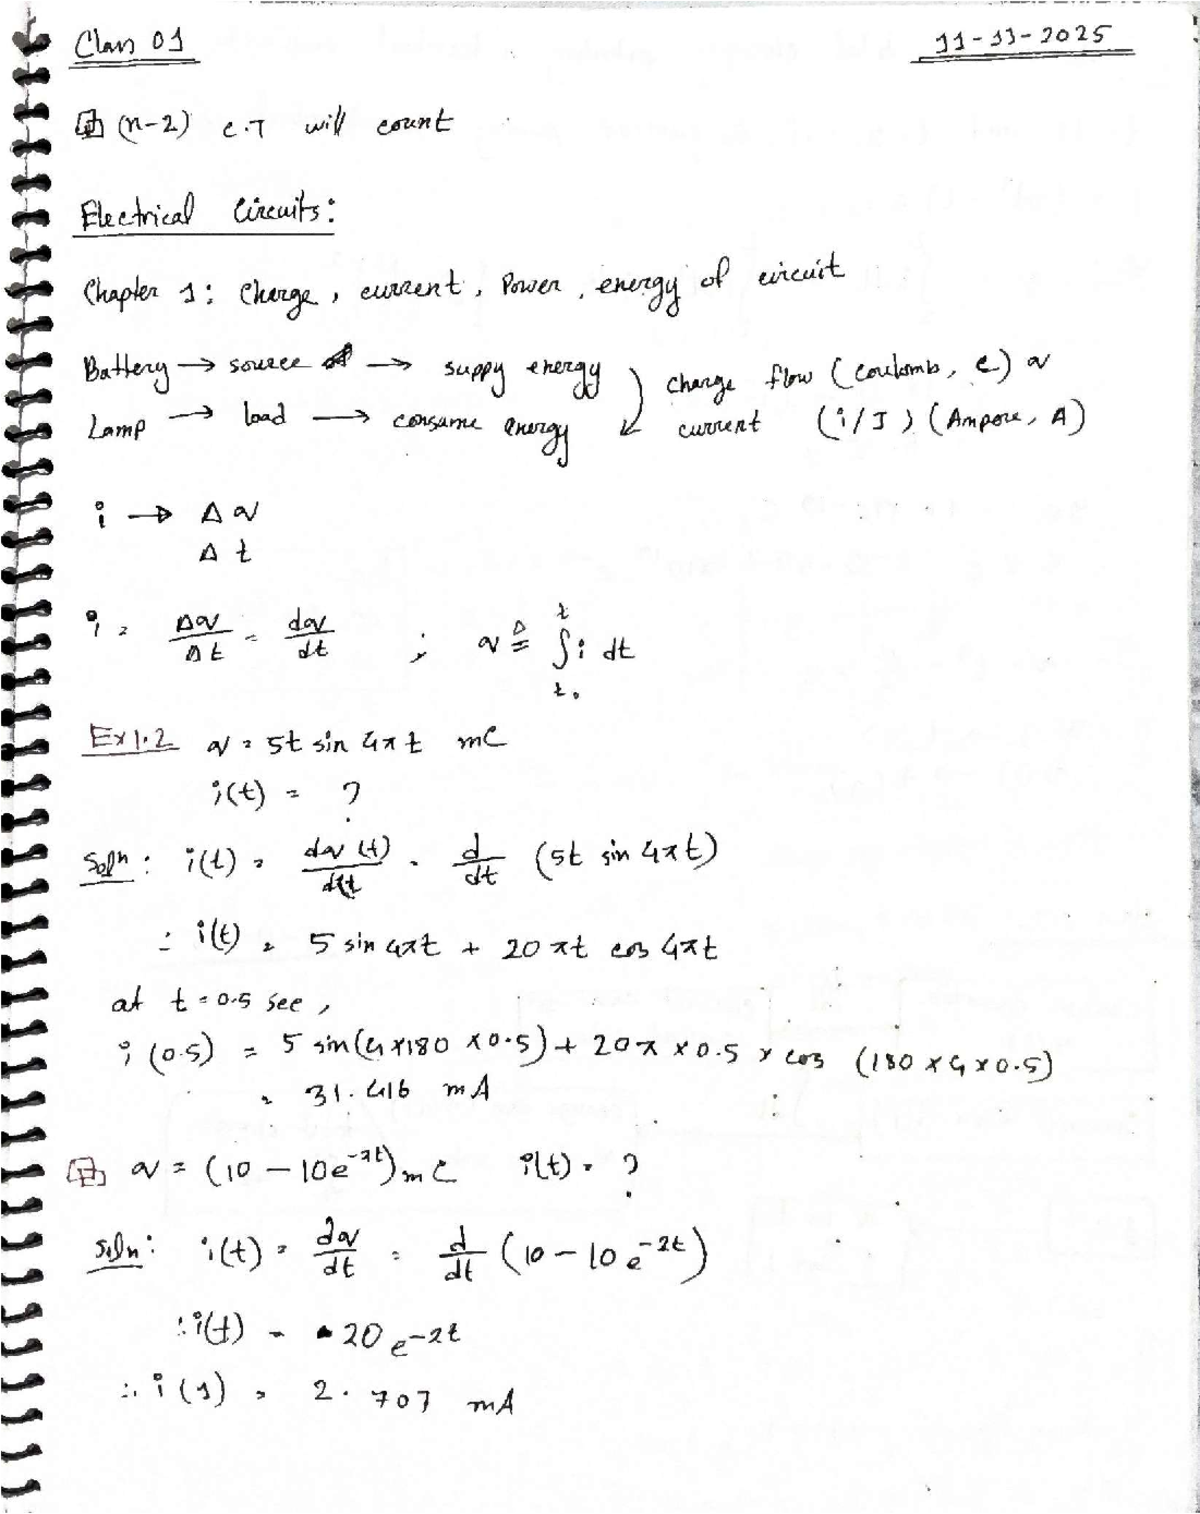 Class 01
11-11-2025
(n-2) C.T will count
Electrical Circuits:
Chapter 1: Charge, current, Power, energy of circuit
Battery → source → suppy energy
charge flow (coulombs, c) q
Lamp → load → consume energy
current (i/I) (Ampere, A)
i → Δq
Δt
i = Δq/Δt = dq/dt ; q ≜ ∫_{t₀}^{t} i dt
Ex 1.2 q = 5t sin 4πt mC
i(t) = ?
Solⁿ: i(t) = dq(t)/dt = d/dt (5t sin 4πt)
∴ i(t) = 5 sin 4πt + 20πt cos 4πt
at t = 0.5 sec,
i(0.5) = 5 sin(4×180×0.5) + 20π × 0.5 × cos (180×4×0.5)
= 31.416 mA
q = (10 – 10e^{-2t}) mC i(t) = ?
Soln: i(t) = dq/dt = d/dt (10 – 10e^{-2t})
∴ i(t) = 20e^{-2t}
∴ i(1) = 2.707 mA